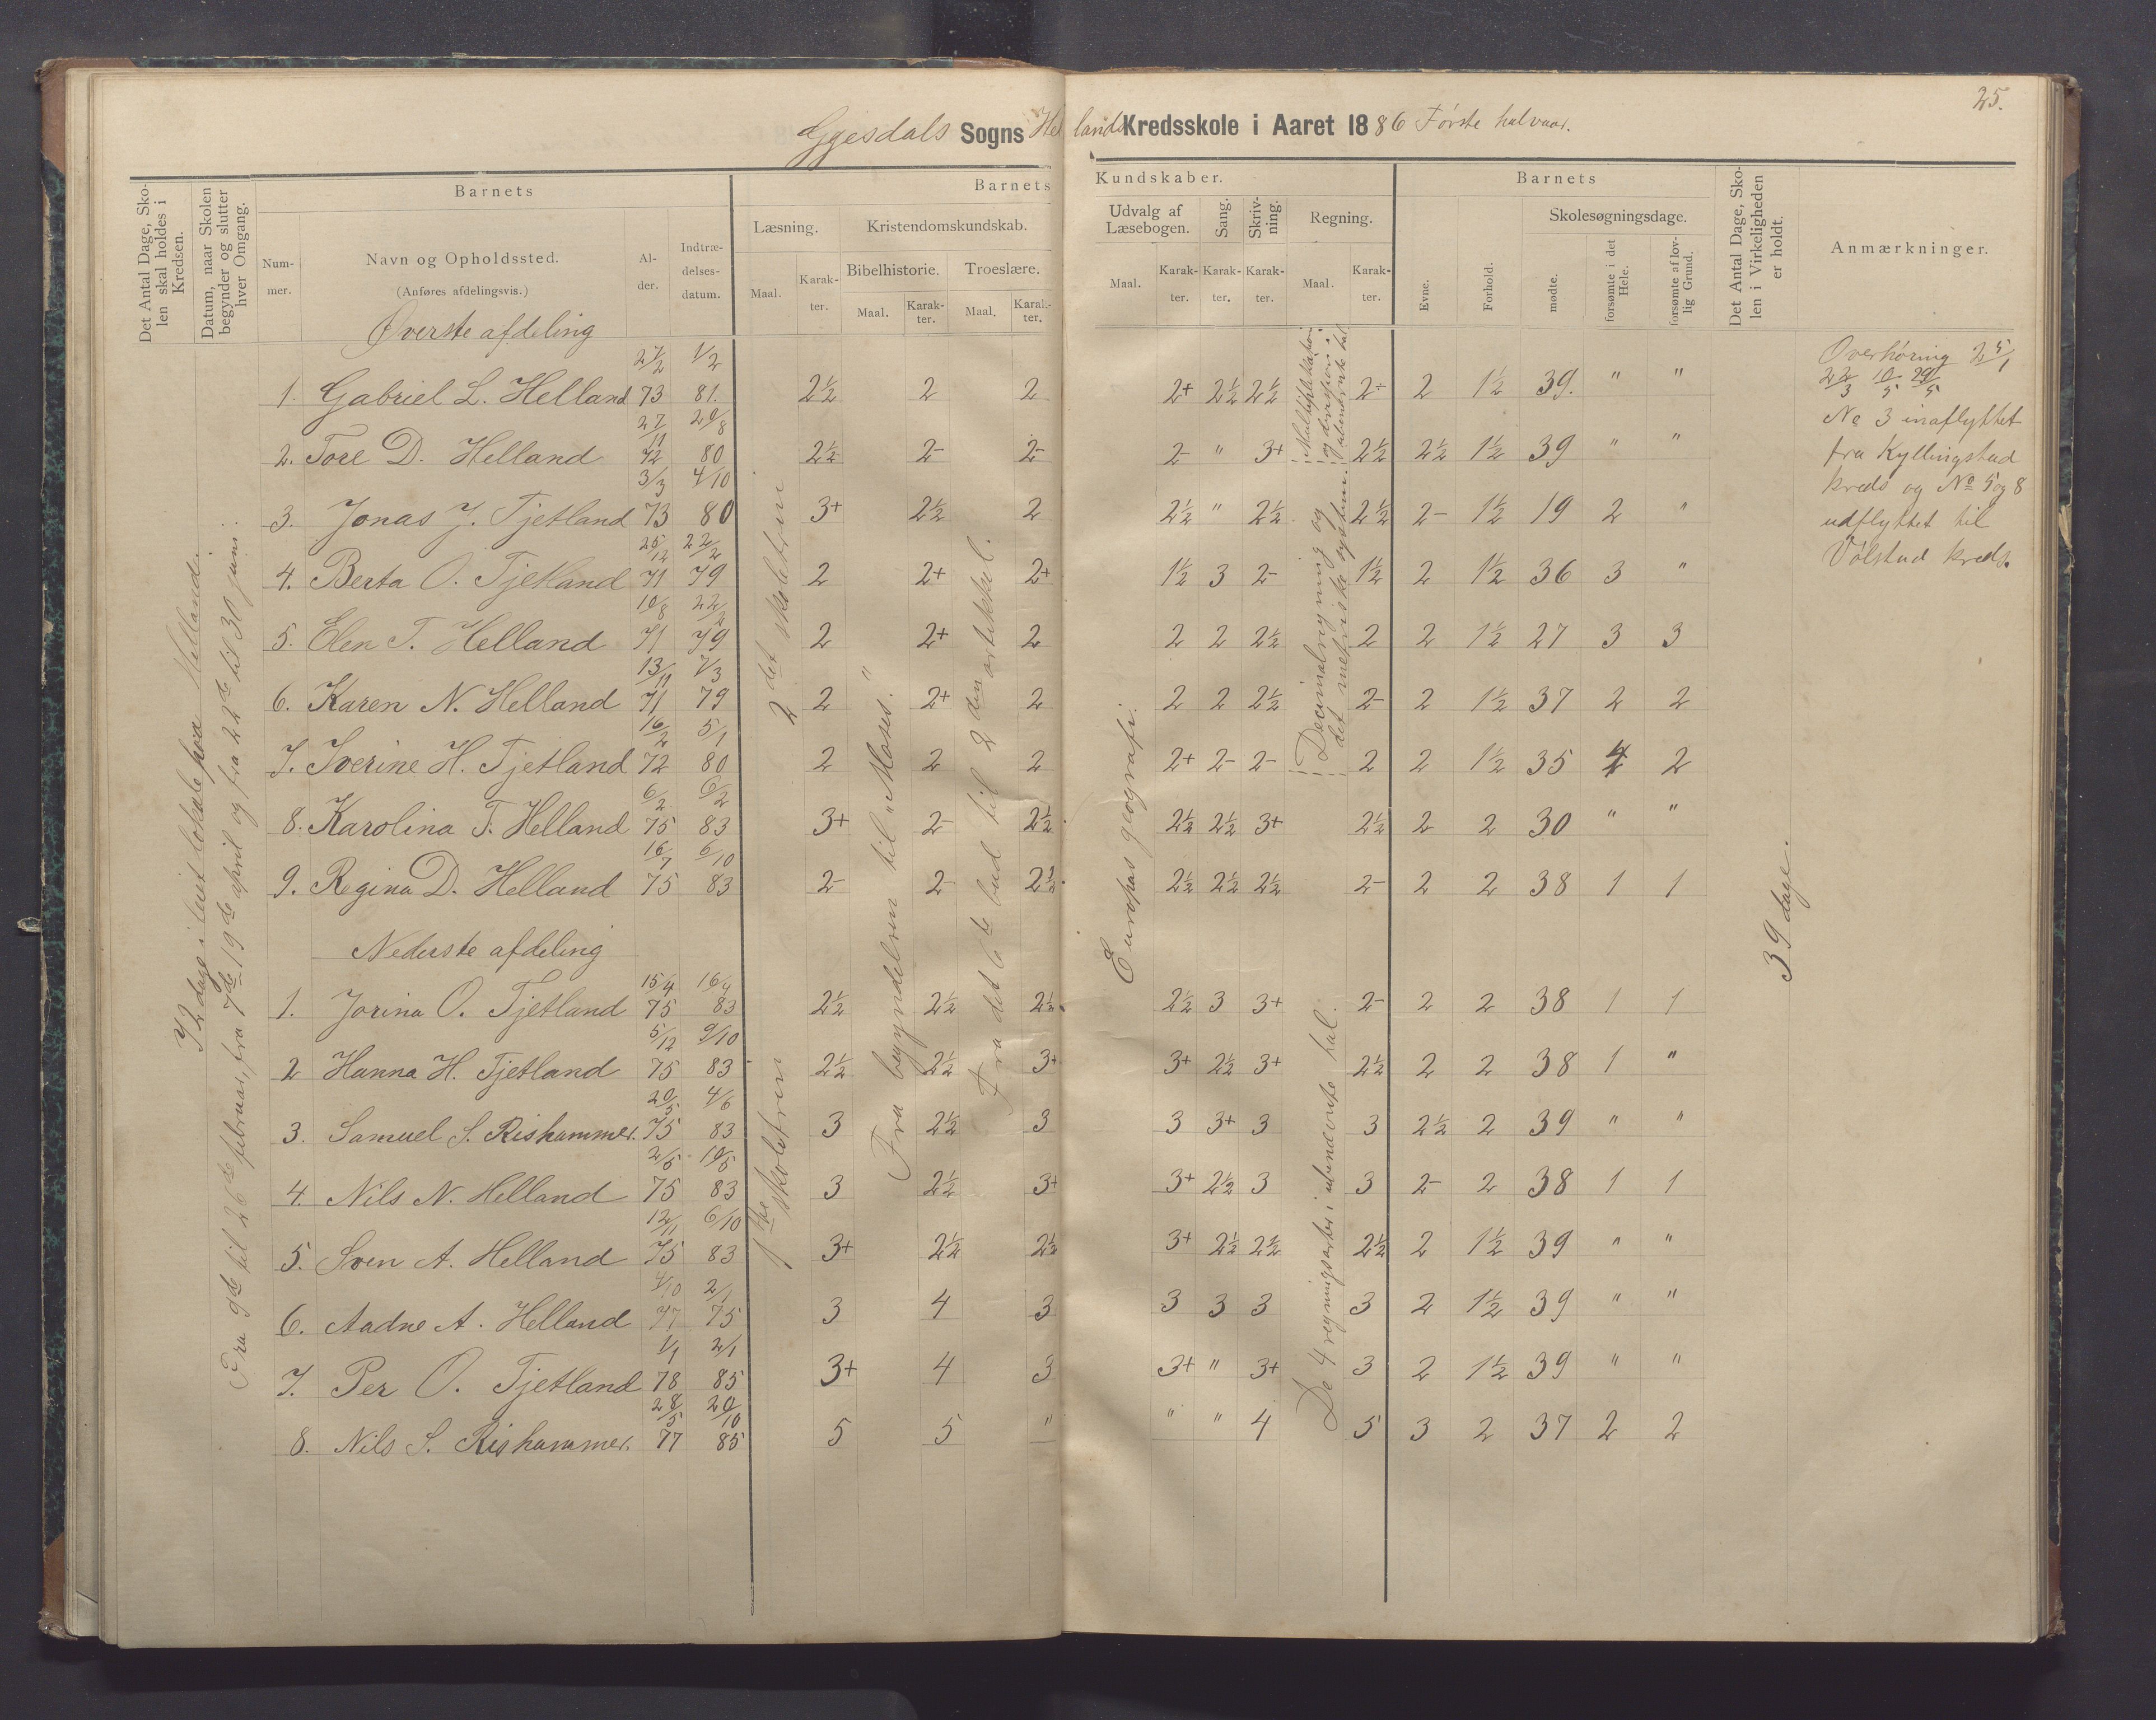 25.
Gjesdals Sogns Hellands Kredsskole i Aaret 1886 Første halvaar.
Det Antal Dage, Skolen skal holdes i Kredsen.
Datum, naar Skolen begynder og slutter hver Omgang.
Barnets
Nummer.
Navn og Opholdssted.
(Anføres afdelingsvis.)
Alder.
Indtrædelsesdatum.
Barnets Kundskaber.
Læsning.
Maal.
Karakter.
Kristendomskundskab.
Bibelhistorie.
Maal.
Karakter.
Troeslære.
Maal.
Karakter.
Udvalg af Læsebogen.
Maal.
Karakter.
Sang.
Karakter.
Skrivning.
Karakter.
Regning.
Maal.
Karakter.
Barnets
Evne.
Forhold.
Skolesøgningsdage.
mødte.
forsømte i det Hele.
forsømte af lovlig Grund.
Det Antal Dage, Skolen i Virkeligheden er holdt.
Anmærkninger.
72 dage i leiet lokale paa Helland.
Fra 9de til 26de februar, fra 7de - 19de april og fra 22de til 30 juni.
Øverste afdeling
1. Gabriel L. Helland 27/2 73 1/2 81. 2½ 2 2 2+ 2½ 2½ 2- 2 1½ 39. " "
2. Tore D. Helland 27/11 72 20/8 80 2½ 2- 2- 2- " 3+ 2½ 2½ 1½ 39 " "
3. Jonas J. Tjetland 3/3 73 4/10 80 3+ 2½ 2 2½ " 2½ 2½ 2- 1½ 19 2 "
4. Berta O. Tjetland 25/12 71 22/2 79 2 2+ 2+ 1½ 3 2- 1½ 2 1½ 36 3 "
5. Elen T. Helland 10/8 71 22/2 79 2 2+ 2 2 2 2½ 2 2 1½ 27 3 3
6. Karen N. Helland 13/11 71 7/3 79 2 2+ 2 2 2 2½ 2- 2 1½ 37 2 2
7. Iverine H. Tjetland 16/2 72 5/1 80 2 2 2 2+ 2- 2- 2 2 1½ 35 4 2
8. Karolina T. Helland 6/2 75 6/2 83 3+ 2- 2½ 2½ 2½ 3+ 2½ 2 2 30 " "
9. Regina D. Helland 16/7 75 6/10 83 2- 2- 2½ 2½ 2½ 2½ 2- 2 2 38 1 1
Nederste afdeling
1. Jorina O. Tjetland 15/4 75 16/4 83 2½ 2½ 2½ 2½ 3 3+ 2- 2 2 38 1 1
2 Hanna H. Tjetland 5/12 75 9/10 83 2½ 2½ 3+ 3+ 2½ 3+ 2½ 2 2 38 1 "
3. Samuel S. Rishammer. 20/5 75 4/6 83 3 2½ 3 3 3+ 3 3 2½ 2 39 " "
4. Nils N. Helland 2/5 75 10/5 83 3 2½ 3+ 3+ 2½ 3 3 2- 2 38 1 1
5. Sven A. Helland 12/11 75 6/10 83 3+ 2½ 2½ 3+ 2½ 2½ 2½ 2 1½ 39 " "
6. Aadne A. Helland 4/10 77 2/1 75 3 4 3 3 3 3 3 2 1½ 39 " "
7. Per O. Tjetland 1/1 78 2/1 85 3+ 4 3 3+ " 3+ 3 2 1½ 39 " "
8. Nils S. Rishammer. 28/5 77 20/10 85 5 5 " " " 4 5 3 2 37 2 2
2det skoletrin
1ste skoletrin
Fra begyndelsen til „Moses."
Fra det 6te bud til 2den artikkel.
Europas geografi.
Multiplikation og division i ubenævnte tal
Decimalregning og det metriske system.
De 4 regningsarter i ubenævnte tal.
39 dage.
Overhøring 25/1
22/3 10/5 29/5
No 3 indflyttet
fra Kyllingstad
kreds og No 5 og 8
udflyttet til
Vølstad kreds.